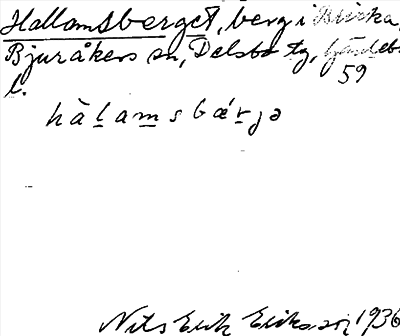 Hallamsberget, berg i Birka,
Bjuråkers sn, Delsbo tg,
59
l.
hàlamsbǽrjə
Nils Erik Eriksson, 1936